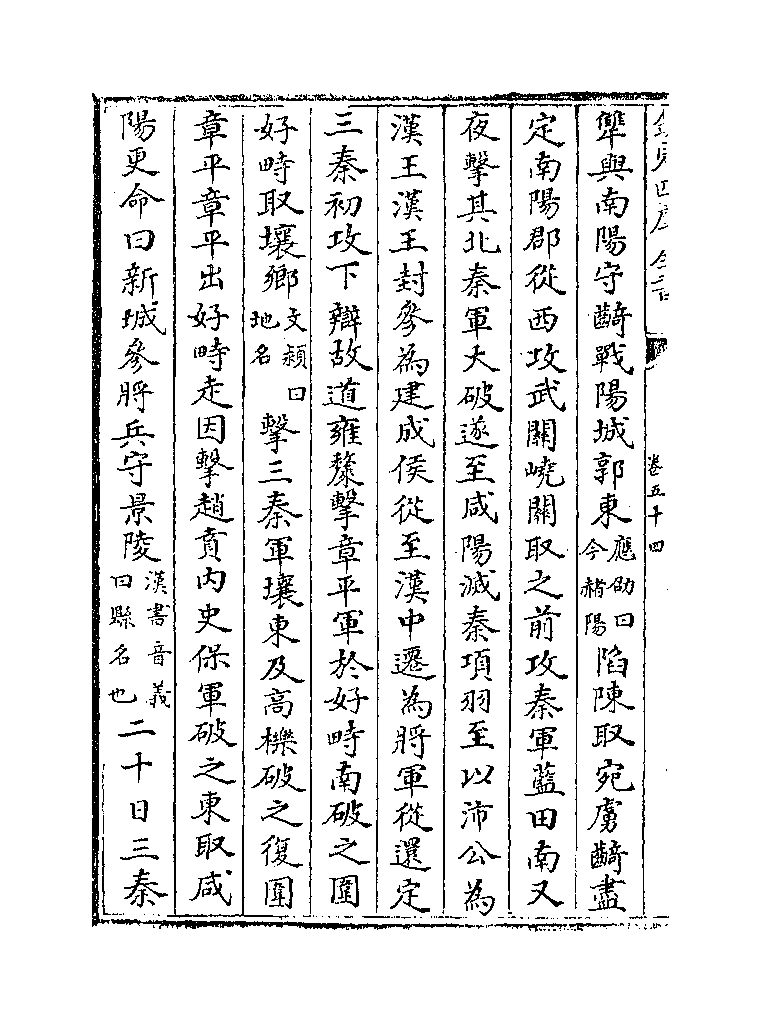 欽定四庫全書
卷五十四
犨與南陽守齮戰陽城郭東應劭曰今赭陽陷陳取宛虜齮盡
定南陽郡從西攻武關嶢關取之前攻秦軍藍田南又
夜擊其北秦軍大破遂至咸陽滅秦項羽至以沛公為
漢王漢王封參為建成侯從至漢中遷為將軍從還定
三秦初攻下辯故道雍斄擊章平軍於好畤南破之圍
好畤取壤鄉文穎曰地名擊三秦軍壤東及高櫟破之復圍
章平章平出好畤走因擊趙賁内史保軍破之東取咸
陽更命曰新城參將兵守景陵漢書音義曰縣名也二十日三秦